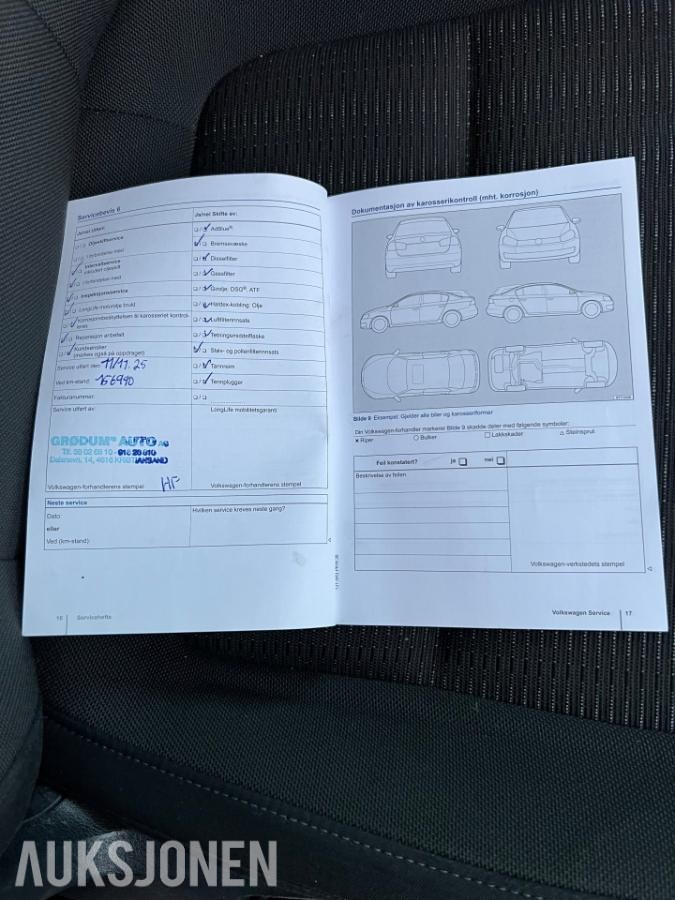 Servicebevis 6
Ja/nei Utført:
Ja/nei Skifte av:
Oljeskiftservice
AdBlue®
I forbindelse med
Bremsevæske
Intervallservice
inkludert oljeskift
Dieselfilter
I forbindelse med
Gassfilter
Inspeksjonsservice
Girolje, DSG®, ATF
LongLife motorolje brukt
Haldex-kobling: Olje
Korrosjonsbeskyttelsen til karosseriet kontrol-
leres
Luftfilterinnsats
Reparasjon anbefalt
Tetningsmiddelflaske
Kundeønsker
(merkes også på oppdraget)
Støv- og pollenfilterinnsats
Service utført den: 11/11.25
Tannreim
Ved km-stand: 156990
Tennplugger
Fakturanummer:
Service utført av:
LongLife mobilitetsgaranti:
GRØDUM® AUTO AS
Volkswagen-forhandlerens stempel
HF
Volkswagen-forhandlerens stempel
Neste service
Dato:
Hvilken service kreves neste gang?
eller
Ved (km-stand):
16 Servicehefte
Dokumentasjon av karosserikontroll (mht. korrosjon)
Bilde 9 Eksempel: Gjelder alle biler og karosseriformer
Din Volkswagen-forhandler markerer Bilde 9 skadde deler med følgende symboler:
× Riper ○ Bulker □ Lakkskader △ Steinsprut
Feil konstatert? ja □ nei □
Beskrivelse av feilen:
Volkswagen-verkstedets stempel
Volkswagen Service 17
AUKSJONEN